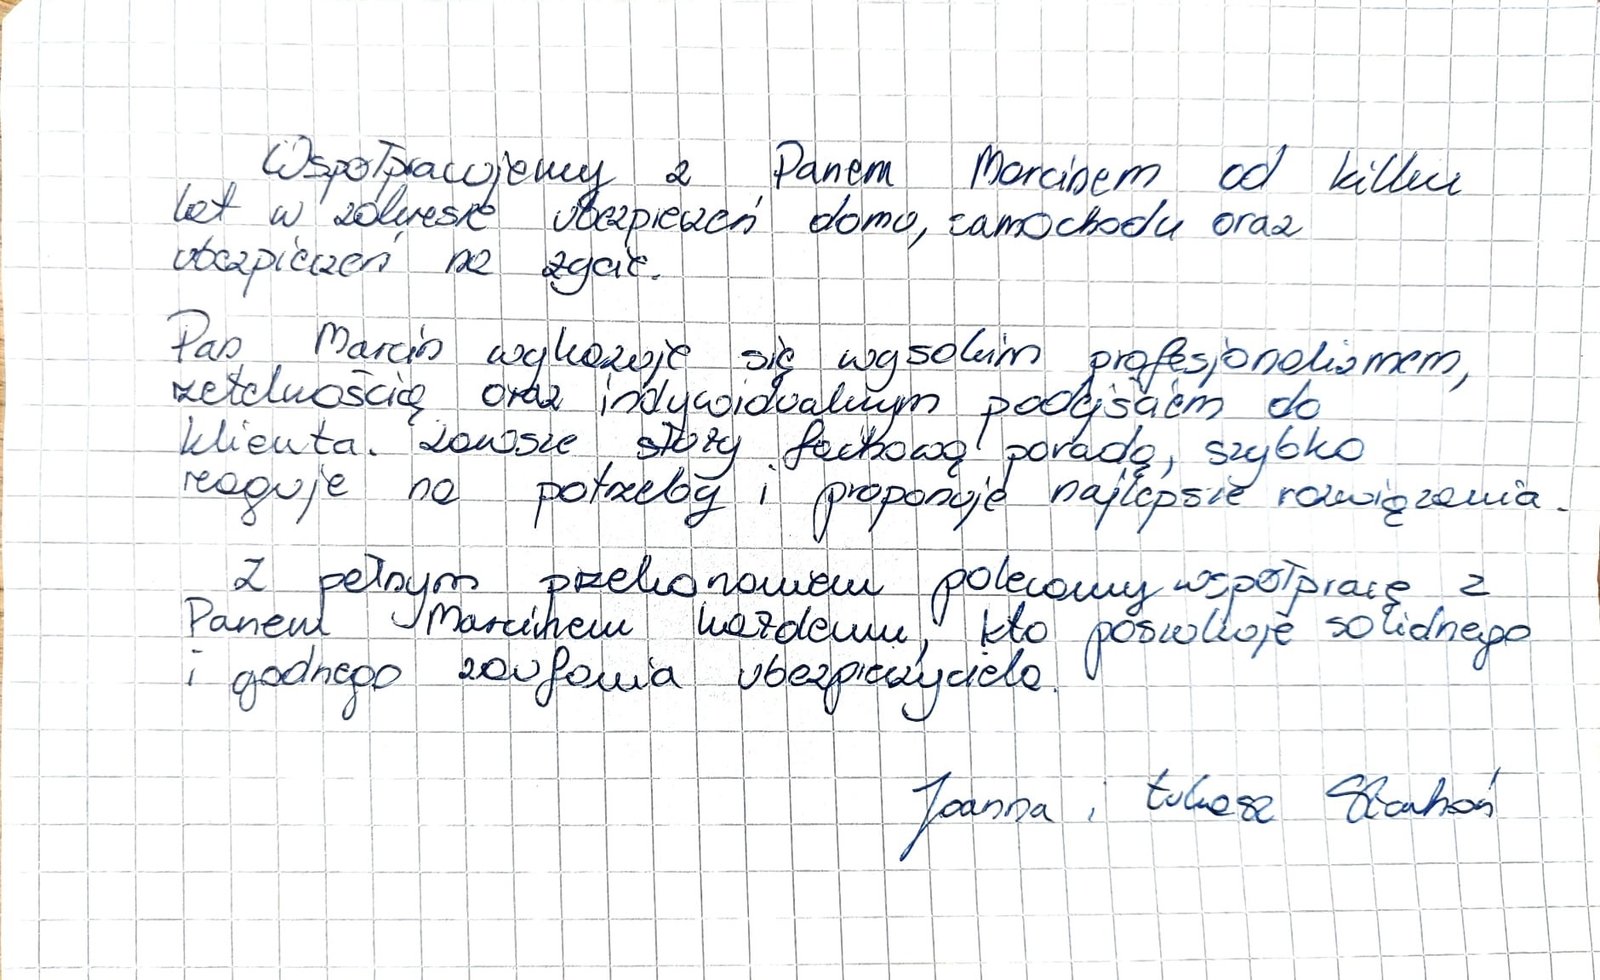 Współpracujemy z Panem Marcinem od kilku
lat w zakresie ubezpieczeń domu, samochodu oraz
ubezpieczeń na życie.
Pan Marcin wykazuje się wysokim profesjonalizmem,
rzetelnością oraz indywidualnym podejściem do
klienta. Zawsze służy fachową poradą, szybko
reaguje na potrzeby i proponuje najlepsze rozwiązania.
Z pełnym przekonaniem polecamy współpracę z
Panem Marcinem każdemu, kto poszukuje solidnego
i godnego zaufania ubezpieczyciela.
Joanna i Łukasz